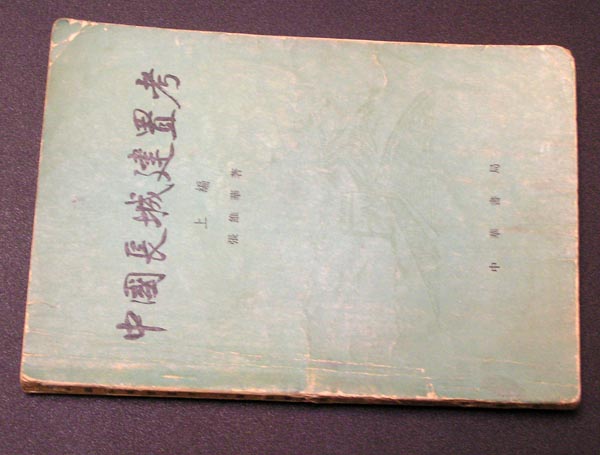 中國長城建置考
上編
張維華著
中華書局